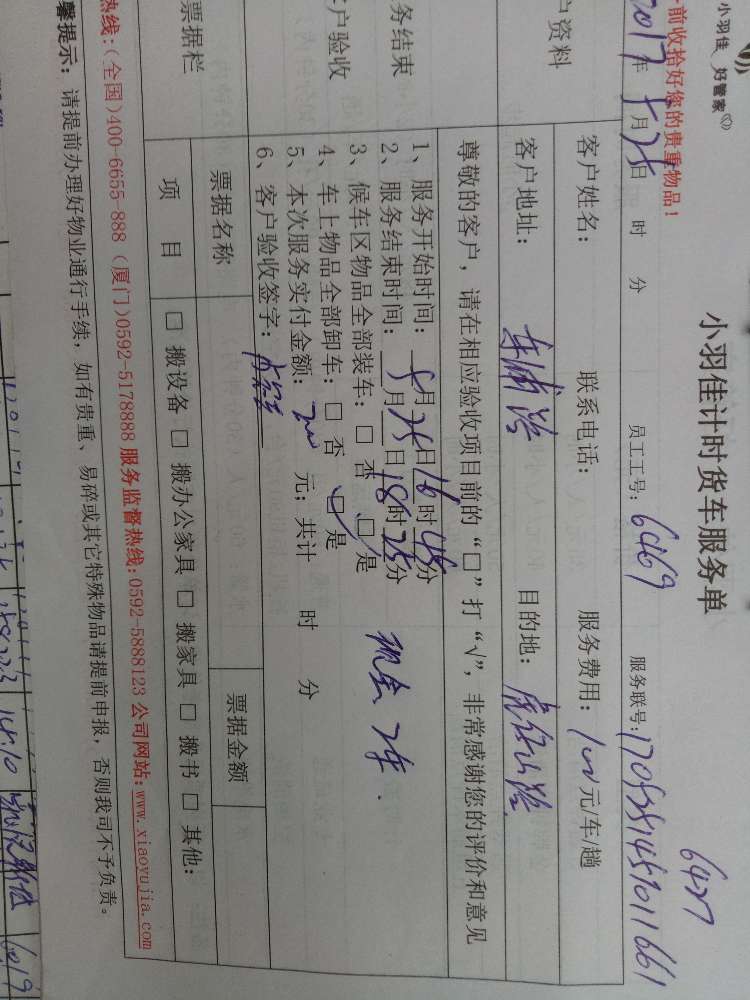 小羽佳 好管家
前收拾好您的贵重物品！
小羽佳计时货车服务单
6427
2017年 5月25日 时 分 员工工号：6469 服务联号：
户资料
客户姓名： 联系电话： 服务费用：100元/车/趟
客户地址： 目的地：虎仔山路
尊敬的客户，请在相应验收项目前的“□”打“√”，非常感谢您的评价和意见
务结束
户验收
1、服务开始时间：5月25日16时45分
2、服务结束时间：5月25日18时25分
3、候车区物品全部装车：□ 否 □ 是
4、车上物品全部卸车：□ 否 □ 是
5、本次服务实付金额：200 元；共计 时 分
现金 2车.
6、客户验收签字：
票据栏
票据名称 票据金额
项 目 □ 搬设备 □ 搬办公家具 □ 搬家具 □ 搬书 □ 其他：
热线：(全国)400-6655 888 (厦门)0592-5178888 服务监督热线：0592-5888123 公司网站：www.xiaoyujia.com
馨提示：请提前办理好物业通行手续，如有贵重、易碎或其它特殊物品请提前申报，否则我司不予负责。
6019